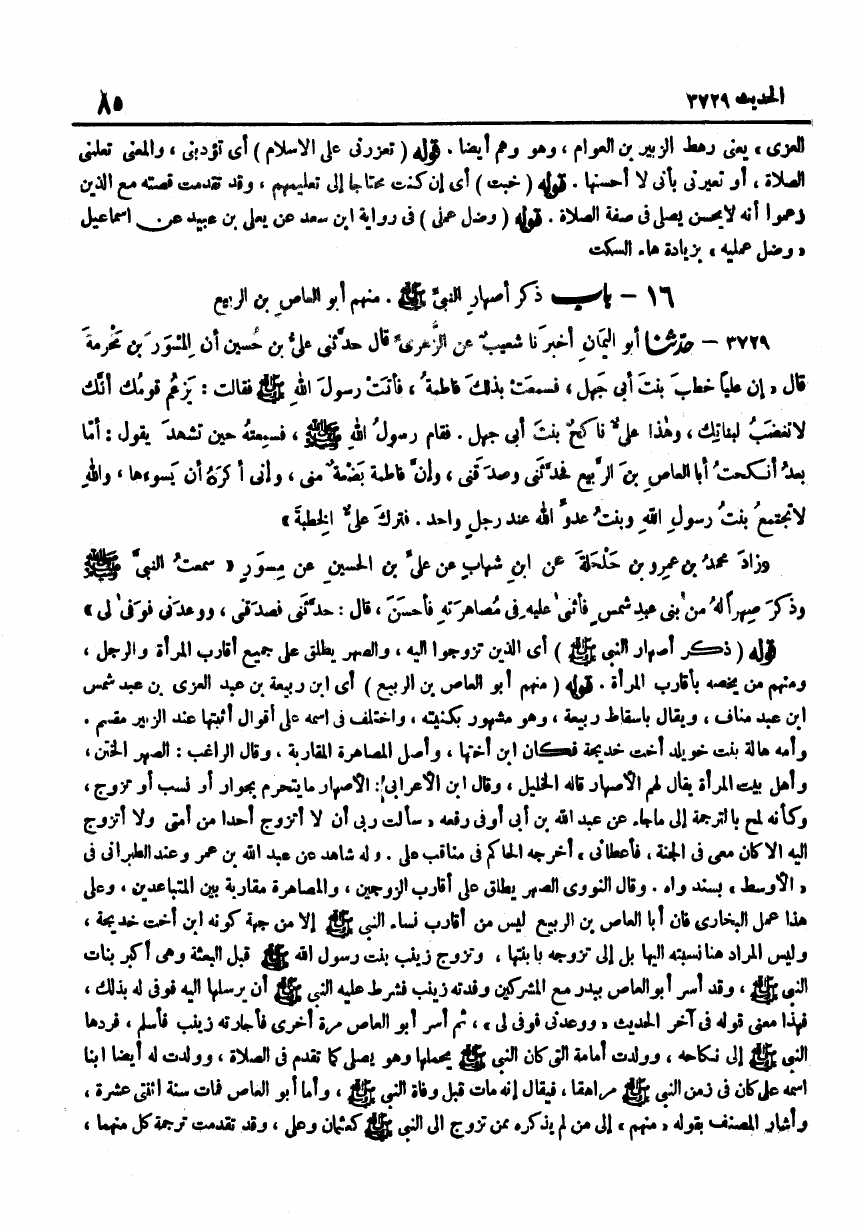 الحديث ٣٧٢٩
٨٥
العزى ، يعنى رهط الزبير بن العوام ، وهو وهم أيضا . قوله ( تعزرنى على الاسلام ) أى تؤدبنى ، والمعنى تعلمنى
الصلاة ، أو تعيرنى بأنى لا أحسنها . قوله ( خبت ) أى إن كنت محتاجا إلى تعليمهم ، وقد تقدمت قصته مع الذين
زعموا أنه لايحسن يصلى فى صفة الصلاة . قوله ( وضل عملى ) فى رواية ابن سعد عن يعلى بن عبيد عن اسماعيل
« وضل عمليه » بزيادة هاء السكت
١٦ - باب ذكر أصهارِ النبىِّ ﷺ . منهم أبو العاصِ بن الربيع
٣٧٢٩ - حدّثنا أبو اليمانِ أخبرَنا شعيبٌ عنِ الزُّهرىِّ قال حدَّثنى علىُّ بن حُسين أن المِسْوَرَ بن مَخرمةَ
قال « إن علياً خطبَ بنتَ أبى جَهل ، فسمعَتْ بذلكَ فاطمةُ ، فأتتْ رسولَ اللهِ ﷺ فقالت : يَزعُم قومُك أنَّك
لاتغضبُ لبناتِك ، وهٰذا علىٌّ ناكحٌ بنتَ أبى جهل . فقام رسولُ اللهِ ﷺ ، فسمِعتُه حين تشهدَ يقول : أمّا
بعدُ أنكحتُ أبا العاصِ بنَ الرَّبيع فحدَّثَنى وصدَقَنى ، وإنَّ فاطمة بَضْعةٌ منى ، وإنى أكرَهُ أن يَسوءها ، واللهِ
لاتجتمعُ بنتُ رسولِ اللهِ وبنتُ عدوِّ اللهِ عند رجلٍ واحد . فترك علىٌّ الخِطبةَ »
وزادَ محمدُ بن عمرِو بن حَلْحَلةَ عنِ ابنِ شهابٍ عن علىِّ بن الحسينِ عن مِسوَرٍ « سمعتُ النبىَّ ﷺ
وذكرَ صِهراً لهُ من بنى عبدِ شمسٍ فأثنى عليه فى مُصاهرَتهِ فأحسَنَ ، قال : حدَّثَنى فصدَقَنى ، ووعدَنى فوَفى لى »
قوله ( ذكر أصهار النبى ﷺ ) أى الذين تزوجوا اليه ، والصهر يطلق على جميع أقارب المرأة والرجل ،
ومنهم من يخصه بأقارب المرأة . قوله ( منهم أبو العاص بن الربيع ) أى ابن ربيعة بن عبد العزى بن عبد شمس
ابن عبد مناف ، ويقال باسقاط ربيعة ، وهو مشهور بكنيته ، واختلف فى اسمه على أقوال أثبتها عند الزبير مقسم .
وأمه هالة بنت خويلد أخت خديجة فكان ابن أختها ، وأصل المصاهرة المقاربة . وقال الراغب : الصهر الختن ،
وأهل بيت المرأة يقال لهم الأصهار قاله الخليل ، وقال ابن الأعرابى : الأصهار مايتحرم بجوار أو نسب أو تزوج ،
وكأنه لمح بالترجمة إلى ماجاء عن عبد الله بن أبى أوفى رفعه « سألت ربى أن لا أتزوج أحدا من أمتى ولا أتزوج
اليه الا كان معى فى الجنة ، فأعطانى » أخرجه الحاكم فى مناقب على . وله شاهد عن عبد الله بن عمر وعند الطبرانى فى
« الأوسط » بسند واه . وقال النووى الصهر يطلق على أقارب الزوجين ، والمصاهرة مقاربة بين المتباعدين ، وعلى
هذا عمل البخارى فان أبا العاص بن الربيع ليس من أقارب نساء النبى ﷺ إلا من جهة كونه ابن أخت خديجة ،
وليس المراد هنا نسبته اليها بل إلى تزوجه بابنتها ، وتزوج زينب بنت رسول الله ﷺ قبل البعثة وهى أكبر بنات
النبى ﷺ ، وقد أسر أبو العاص ببدر مع المشركين وفدته زينب فشرط عليه النبى ﷺ أن يرسلها اليه فوفى له بذلك ،
فهذا معنى قوله فى آخر الحديث « ووعدنى فوفى لى » ، ثم أسر أبو العاص مرة أخرى فأجارته زينب فأسلم ، فردها
النبى ﷺ إلى نكاحه ، وولدت أمامة التى كان النبى ﷺ يحملها وهو يصلى كما تقدم فى الصلاة ، وولدت له أيضا ابنا
اسمه على كان فى زمن النبى ﷺ مراهقا ، فيقال إنه مات قبل وفاة النبى ﷺ ، وأما أبو العاص فمات سنة اثنتى عشرة ،
وأشار المصنف بقوله « منهم » إلى من لم يذكره ممن تزوج الى النبى ﷺ كعثمان وعلى ، وقد تقدمت ترجمة كل منهما ،